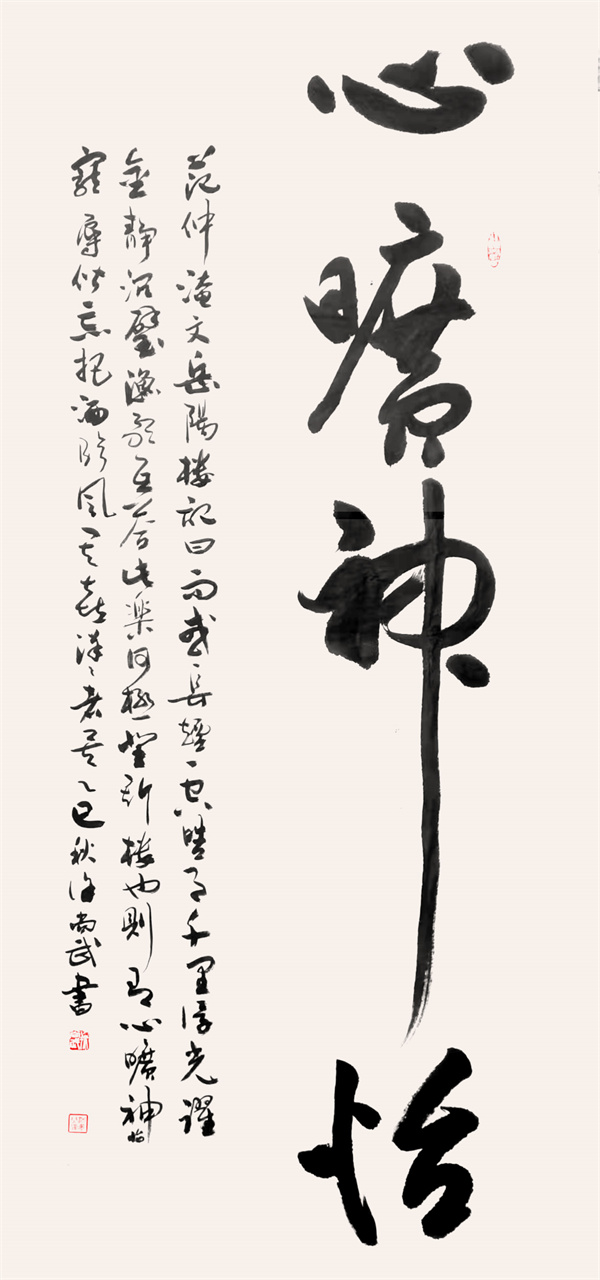 心曠神怡
范仲淹文岳陽樓記曰而或長煙一空皓月千里浮光躍
金靜沉璧漁歌互答此樂何極登斯樓也則有心曠神怡
寵辱偕忘把酒臨風其喜洋洋者矣乙巳秋尚武書